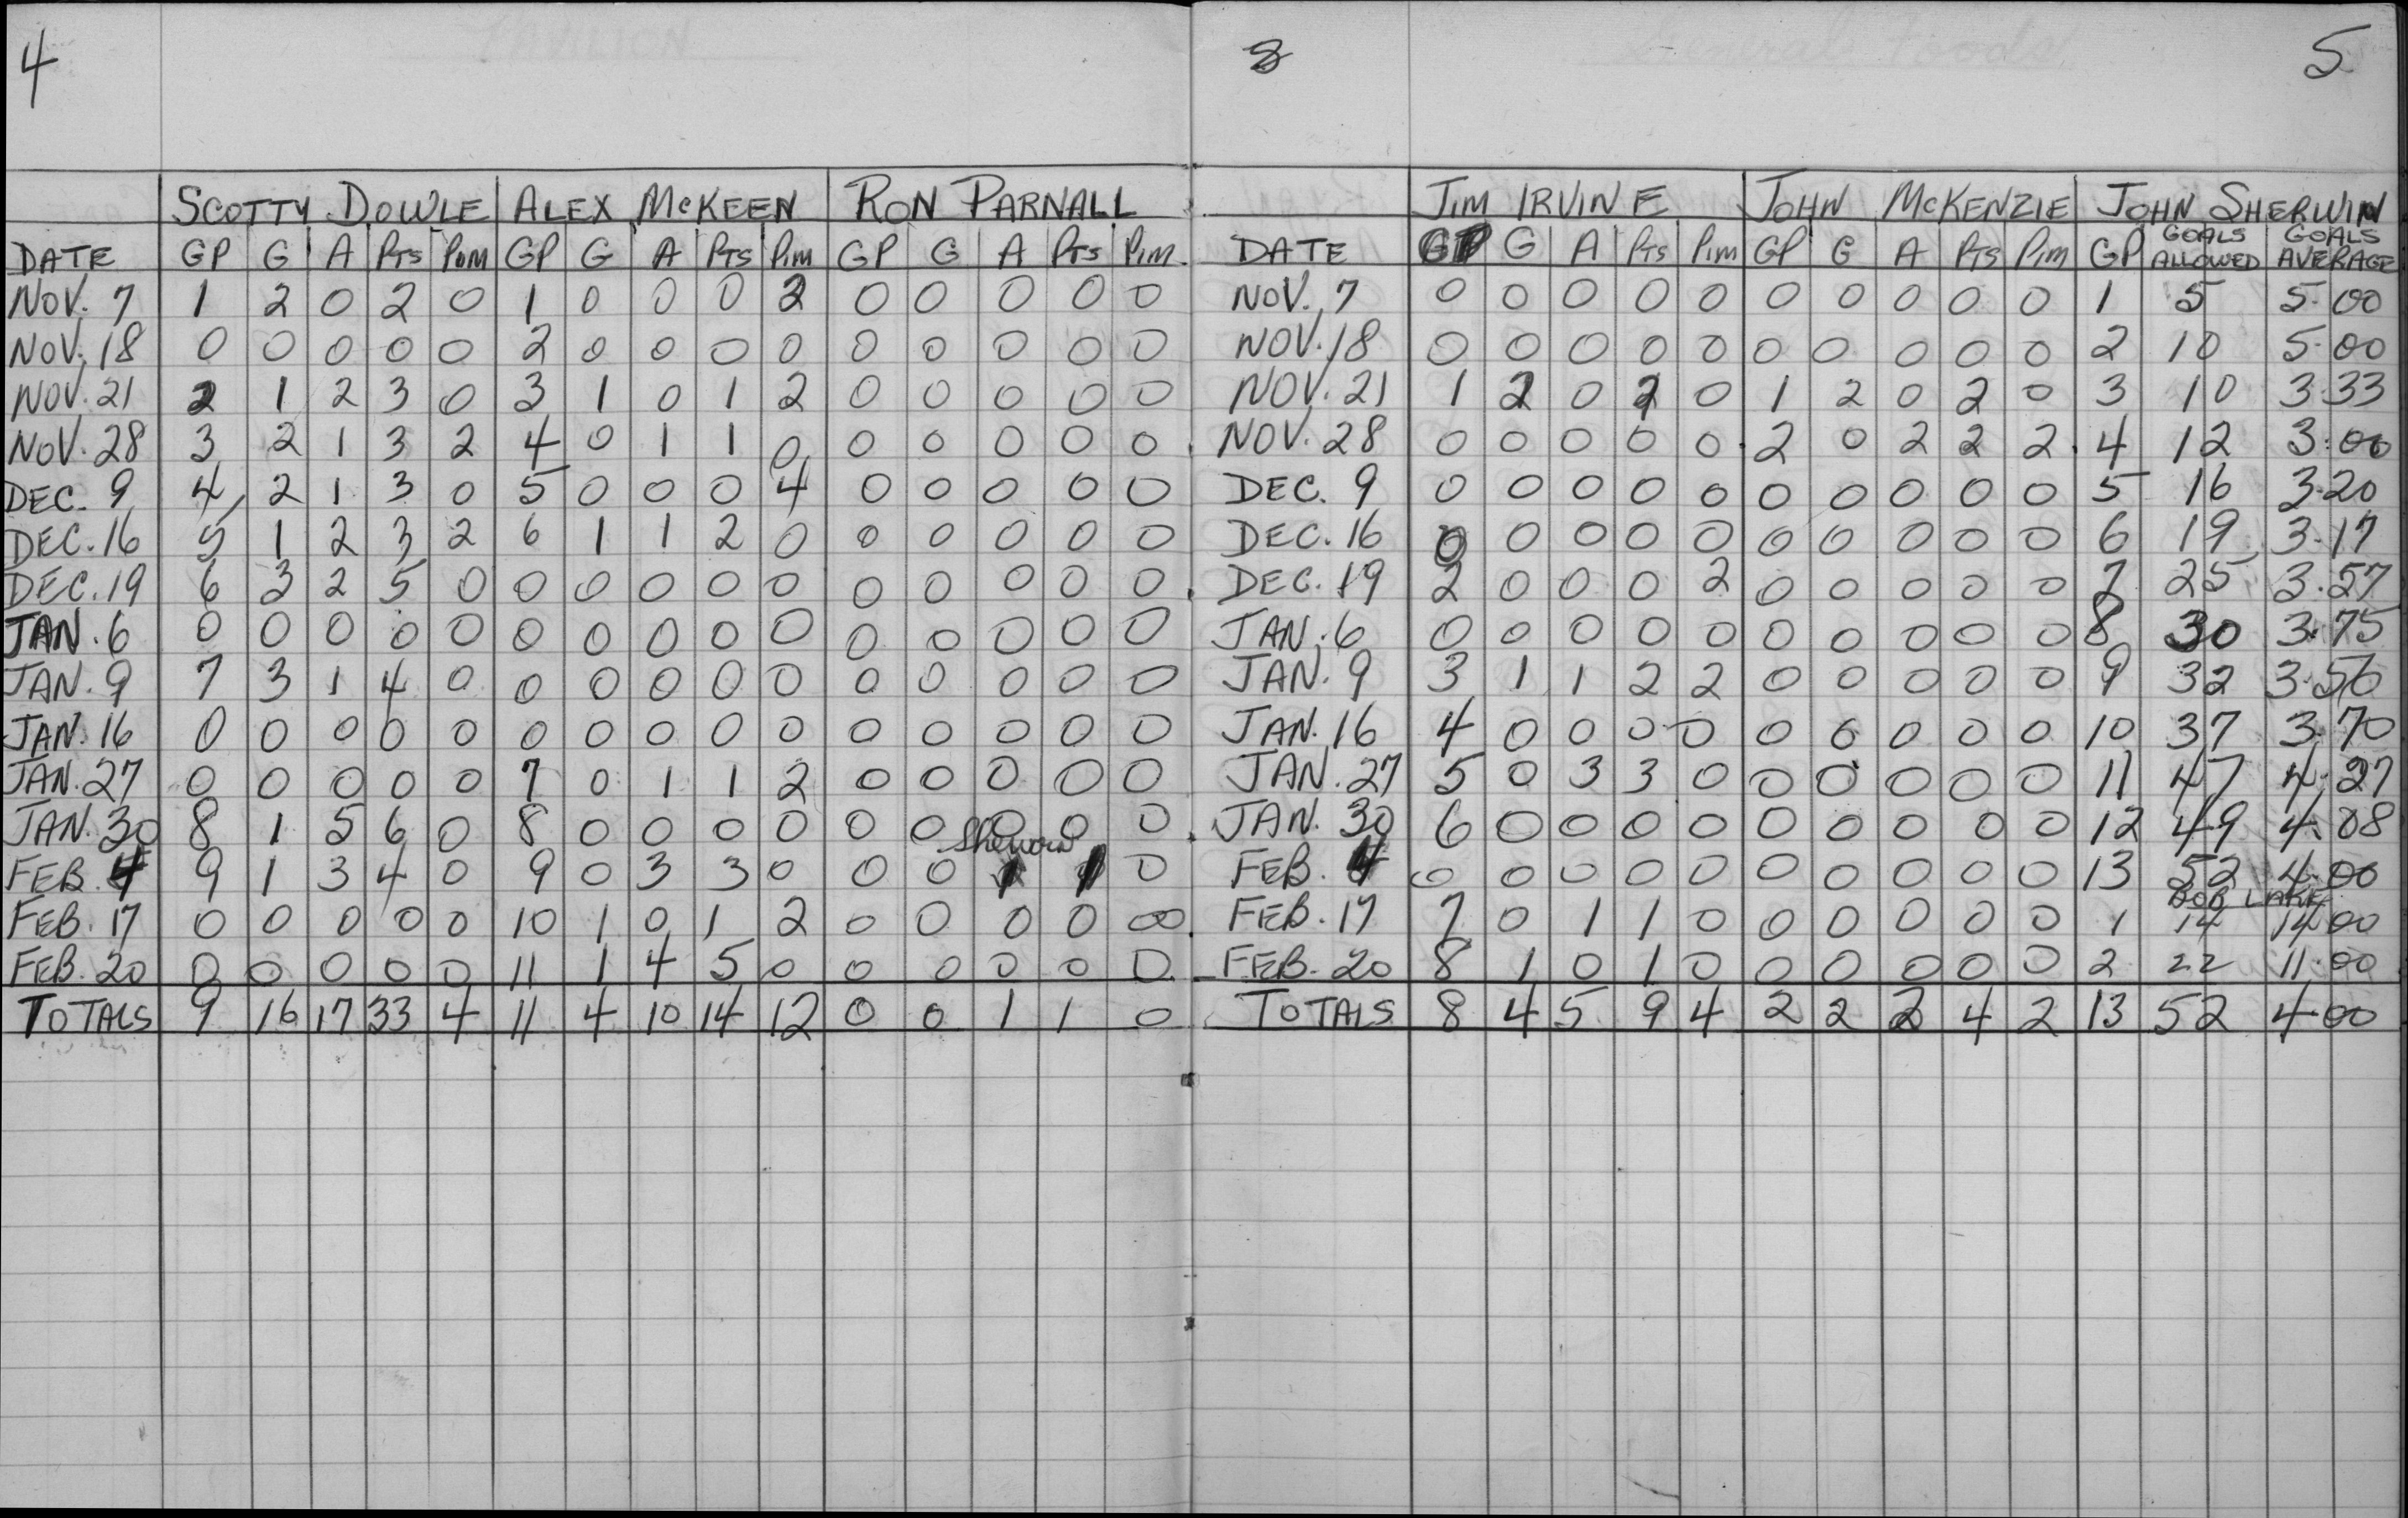 4
SCOTTY DOWLE ALEX McKEEN RON PARNALL
DATE GP G A PTS PIM GP G A PTS PIM GP G A PTS PIM
NOV. 7 1 2 0 2 0 1 0 0 0 2 0 0 0 0 0
NOV. 18 0 0 0 0 0 2 0 0 0 0 0 0 0 0 0
NOV. 21 2 1 2 3 0 3 1 0 1 2 0 0 0 0 0
NOV. 28 3 2 1 3 2 4 0 1 1 0 0 0 0 0 0
DEC. 9 4 2 1 3 0 5 0 0 0 4 0 0 0 0 0
DEC. 16 5 1 2 3 2 6 1 1 2 0 0 0 0 0 0
DEC. 19 6 3 2 5 0 0 0 0 0 0 0 0 0 0 0
JAN. 6 0 0 0 0 0 0 0 0 0 0 0 0 0 0 0
JAN. 9 7 3 1 4 0 0 0 0 0 0 0 0 0 0 0
JAN. 16 0 0 0 0 0 0 0 0 0 0 0 0 0 0 0
JAN. 27 0 0 0 0 0 7 0 1 1 2 0 0 0 0 0
JAN. 30 8 1 5 6 0 8 0 0 0 0 0 0 0 0 0
FEB. 4 9 1 3 4 0 9 0 3 3 0 0 0 1 1 0
FEB. 17 0 0 0 0 0 10 1 0 1 2 0 0 0 0 00
FEB. 20 0 0 0 0 0 11 1 4 5 0 0 0 0 0 0
TOTALS 9 16 17 33 4 11 4 10 14 12 0 0 1 1 0
5
JIM IRVINE JOHN McKENZIE JOHN SHERWIN
DATE GP G A PTS PIM GP G A PTS PIM GP GOALS ALLOWED GOALS AVERAGE
NOV. 7 0 0 0 0 0 0 0 0 0 0 1 5 5.00
NOV. 18 0 0 0 0 0 0 0 0 0 0 2 10 5.00
NOV. 21 1 2 0 2 0 1 2 0 2 0 3 10 3.33
NOV. 28 0 0 0 0 0 2 0 2 2 2 4 12 3.00
DEC. 9 0 0 0 0 0 0 0 0 0 0 5 16 3.20
DEC. 16 0 0 0 0 0 0 0 0 0 0 6 19 3.17
DEC. 19 2 0 0 0 2 0 0 0 0 0 7 25 3.57
JAN. 6 0 0 0 0 0 0 0 0 0 0 8 30 3.75
JAN. 9 3 1 1 2 2 0 0 0 0 0 9 32 3.56
JAN. 16 4 0 0 0 0 0 0 0 0 0 10 37 3.70
JAN. 27 5 0 3 3 0 0 0 0 0 0 11 47 4.27
JAN. 30 6 0 0 0 0 0 0 0 0 0 12 49 4.08
FEB. 4 0 0 0 0 0 0 0 0 0 0 13 52 4.00
BOB LAKE
FEB. 17 7 0 1 1 0 0 0 0 0 0 1 14 14.00
FEB. 20 8 1 0 1 0 0 0 0 0 0 2 22 11.00
TOTALS 8 4 5 9 4 2 2 2 4 2 13 52 4.00